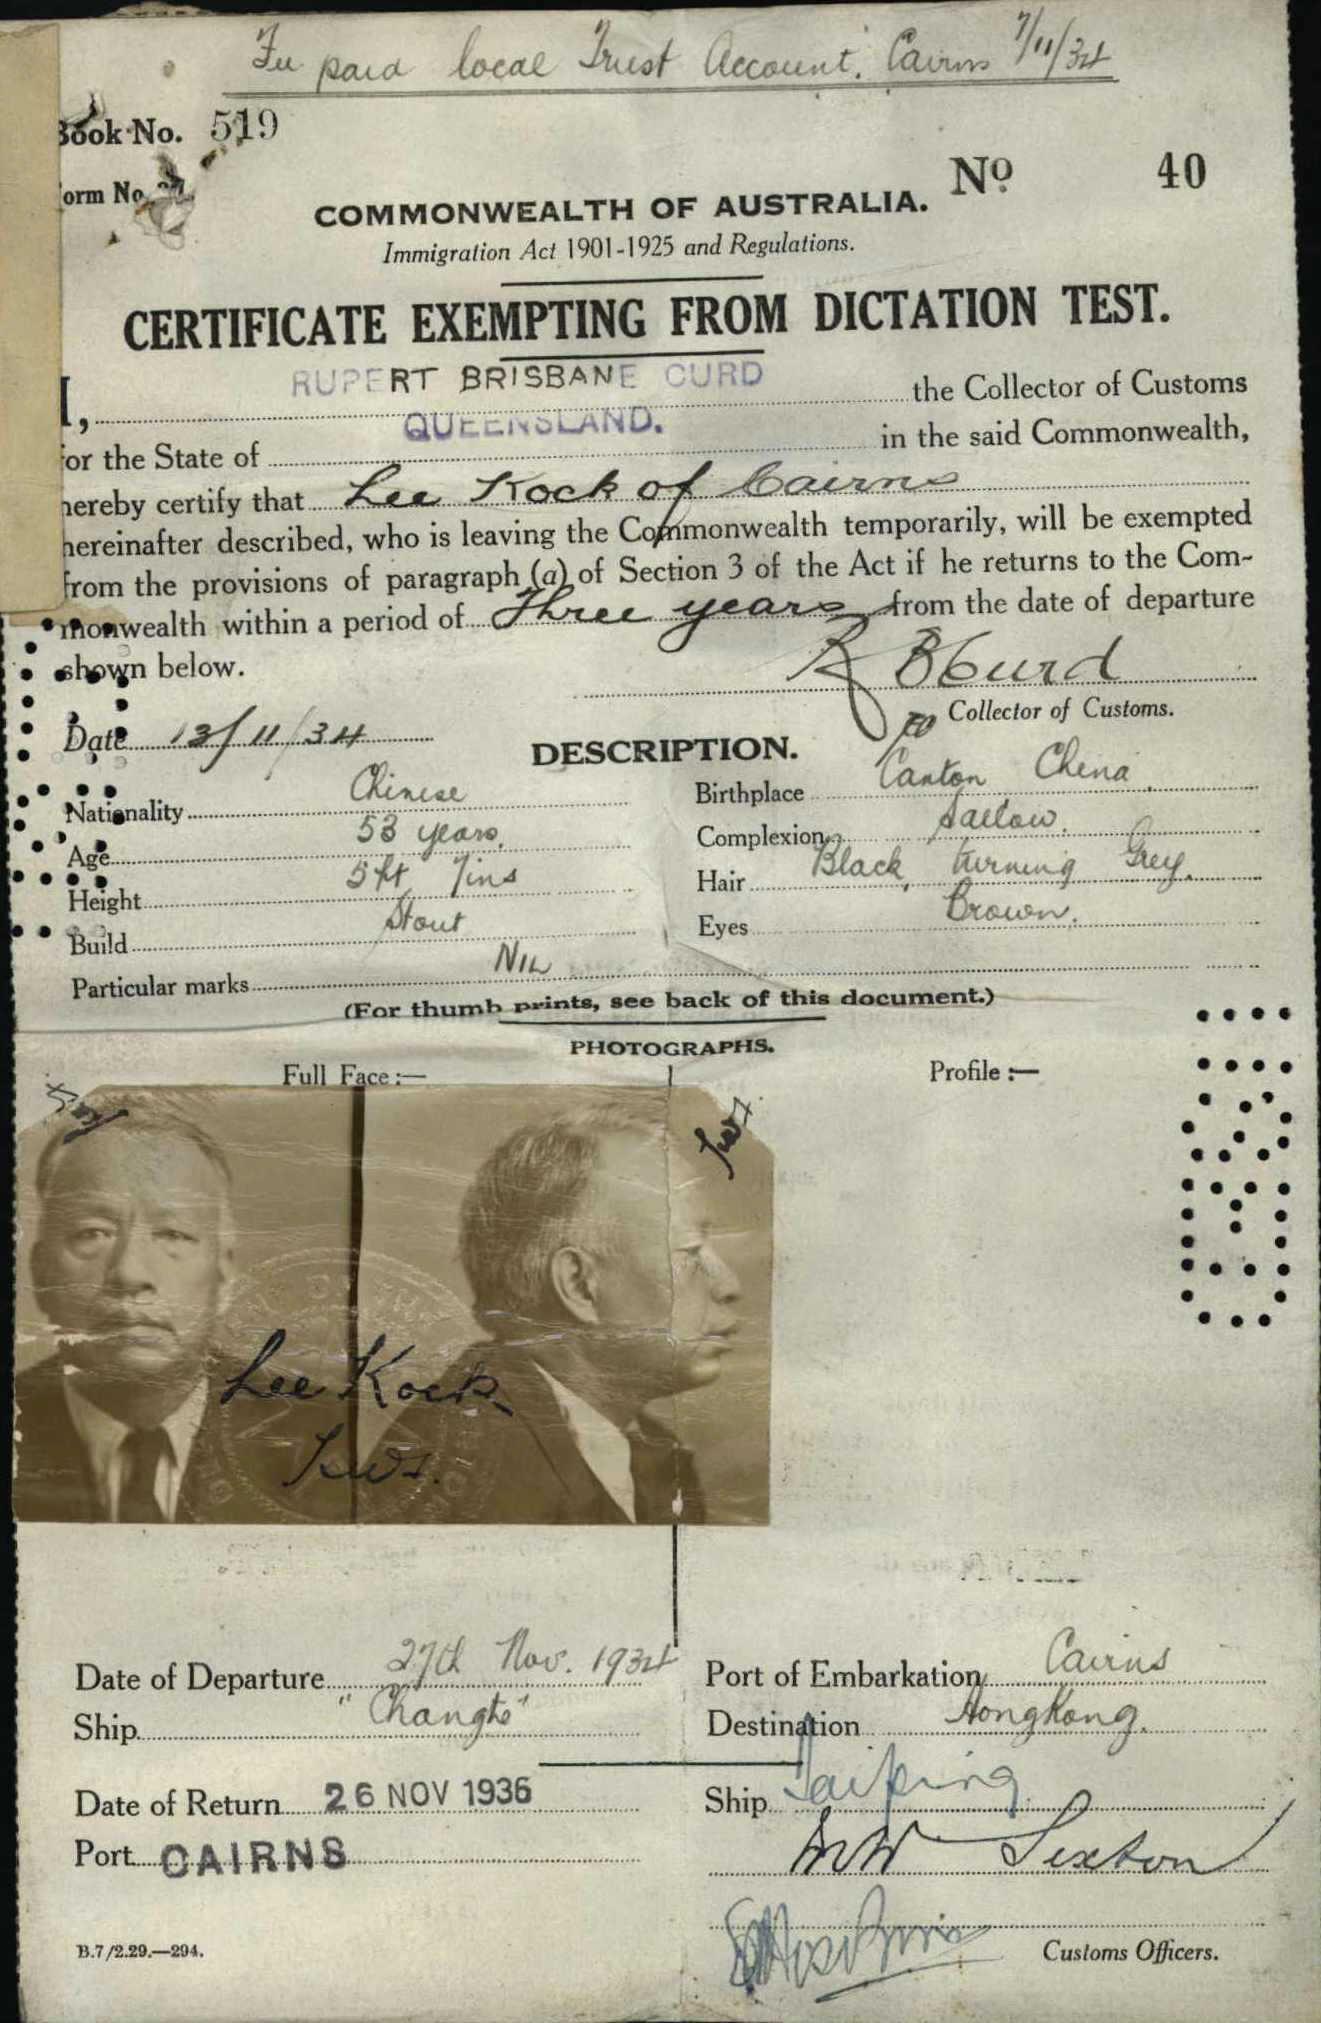 Fee paid local Trust Account. Cairns 7/11/34
Book No. 519
Form No.
No 40
COMMONWEALTH OF AUSTRALIA.
Immigration Act 1901-1925 and Regulations.
CERTIFICATE EXEMPTING FROM DICTATION TEST.
I, RUPERT BRISBANE CURD the Collector of Customs
for the State of QUEENSLAND. in the said Commonwealth,
hereby certify that Lee Kock of Cairns
hereinafter described, who is leaving the Commonwealth temporarily, will be exempted
from the provisions of paragraph (a) of Section 3 of the Act if he returns to the Com-
monwealth within a period of Three years from the date of departure
shown below.
R B Curd
Collector of Customs.
Date 13/11/34
DESCRIPTION.
Nationality Chinese
Birthplace Canton China
Age 53 years.
Complexion Sallow.
Height 5 ft 7ins
Hair Black, turning Grey.
Build Stout
Eyes Brown.
Particular marks NIL
(For thumb prints, see back of this document.)
PHOTOGRAPHS.
Full Face:—
Profile:—
Lee Kock
Date of Departure 27th Nov. 1934
Port of Embarkation Cairns
Ship "Changte"
Destination HongKong.
Date of Return 26 NOV 1936
Ship Taiping
Port CAIRNS
Sexton
B.7/2.29.—294.
Customs Officers.